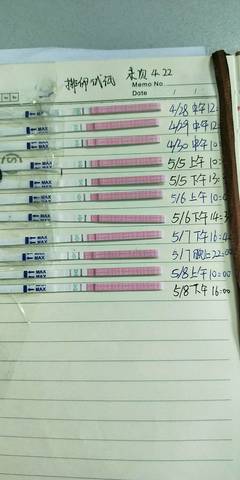 排卵试试 末次4.22
Memo No
Date / /
4/28 中午12:
4/29 中午12:
4/30 中午10:
5/5 上午10:
5/5 下午
5/6 上午10:
5/6 下午14:
5/7 下午16:
5/7 晚上22:00
5/8 上午10:00
5/8 下午16:00
MAX
MAX
MAX
MAX
MAX
MAX
MAX
MAX
MAX
MAX
MAX